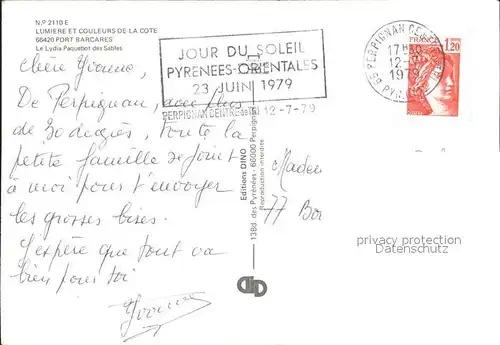 N.º 2110 E
LUMIERE ET COULEURS DE LA COTE
66420 PORT BARCARES
Le Lydia Paquebot des Sables
JOUR DU SOLEIL
PYRENEES-ORIENTALES
23 JUIN 1979
PERPIGNAN CENTRE 12-7-79
PERPIGNAN CENTRE
17H30
12-7
1979
66 PYR
FRANCE
1,20
Chère Yvonne,
De Perpignan, avec plus
de 30 degrés, toute la
petite famille se joint
à moi pour t'envoyer
les grosses bises.
J'espère que tout va
bien pour toi
Yvonne
Editions DINO
13Bd. des Pyrénées - 66000 Perpignan
Reproduction interdite
Madem
77
privacy protection
Datenschutz